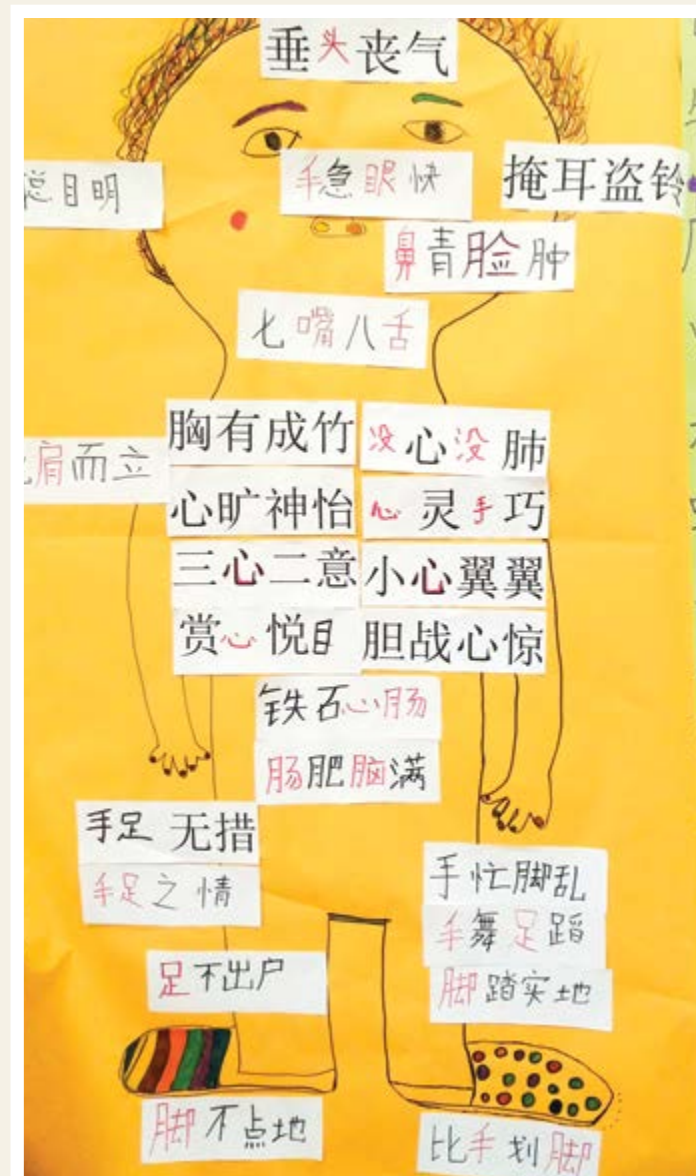 垂头丧气
手急眼快
掩耳盗铃
目明
鼻青脸肿
七嘴八舌
胸有成竹
没心没肺
肩而立
心旷神怡
心灵手巧
三心二意
小心翼翼
赏心悦目
胆战心惊
铁石心肠
肠肥脑满
手足无措
手足之情
手忙脚乱
手舞足蹈
足不出户
脚踏实地
脚不点地
比手划脚